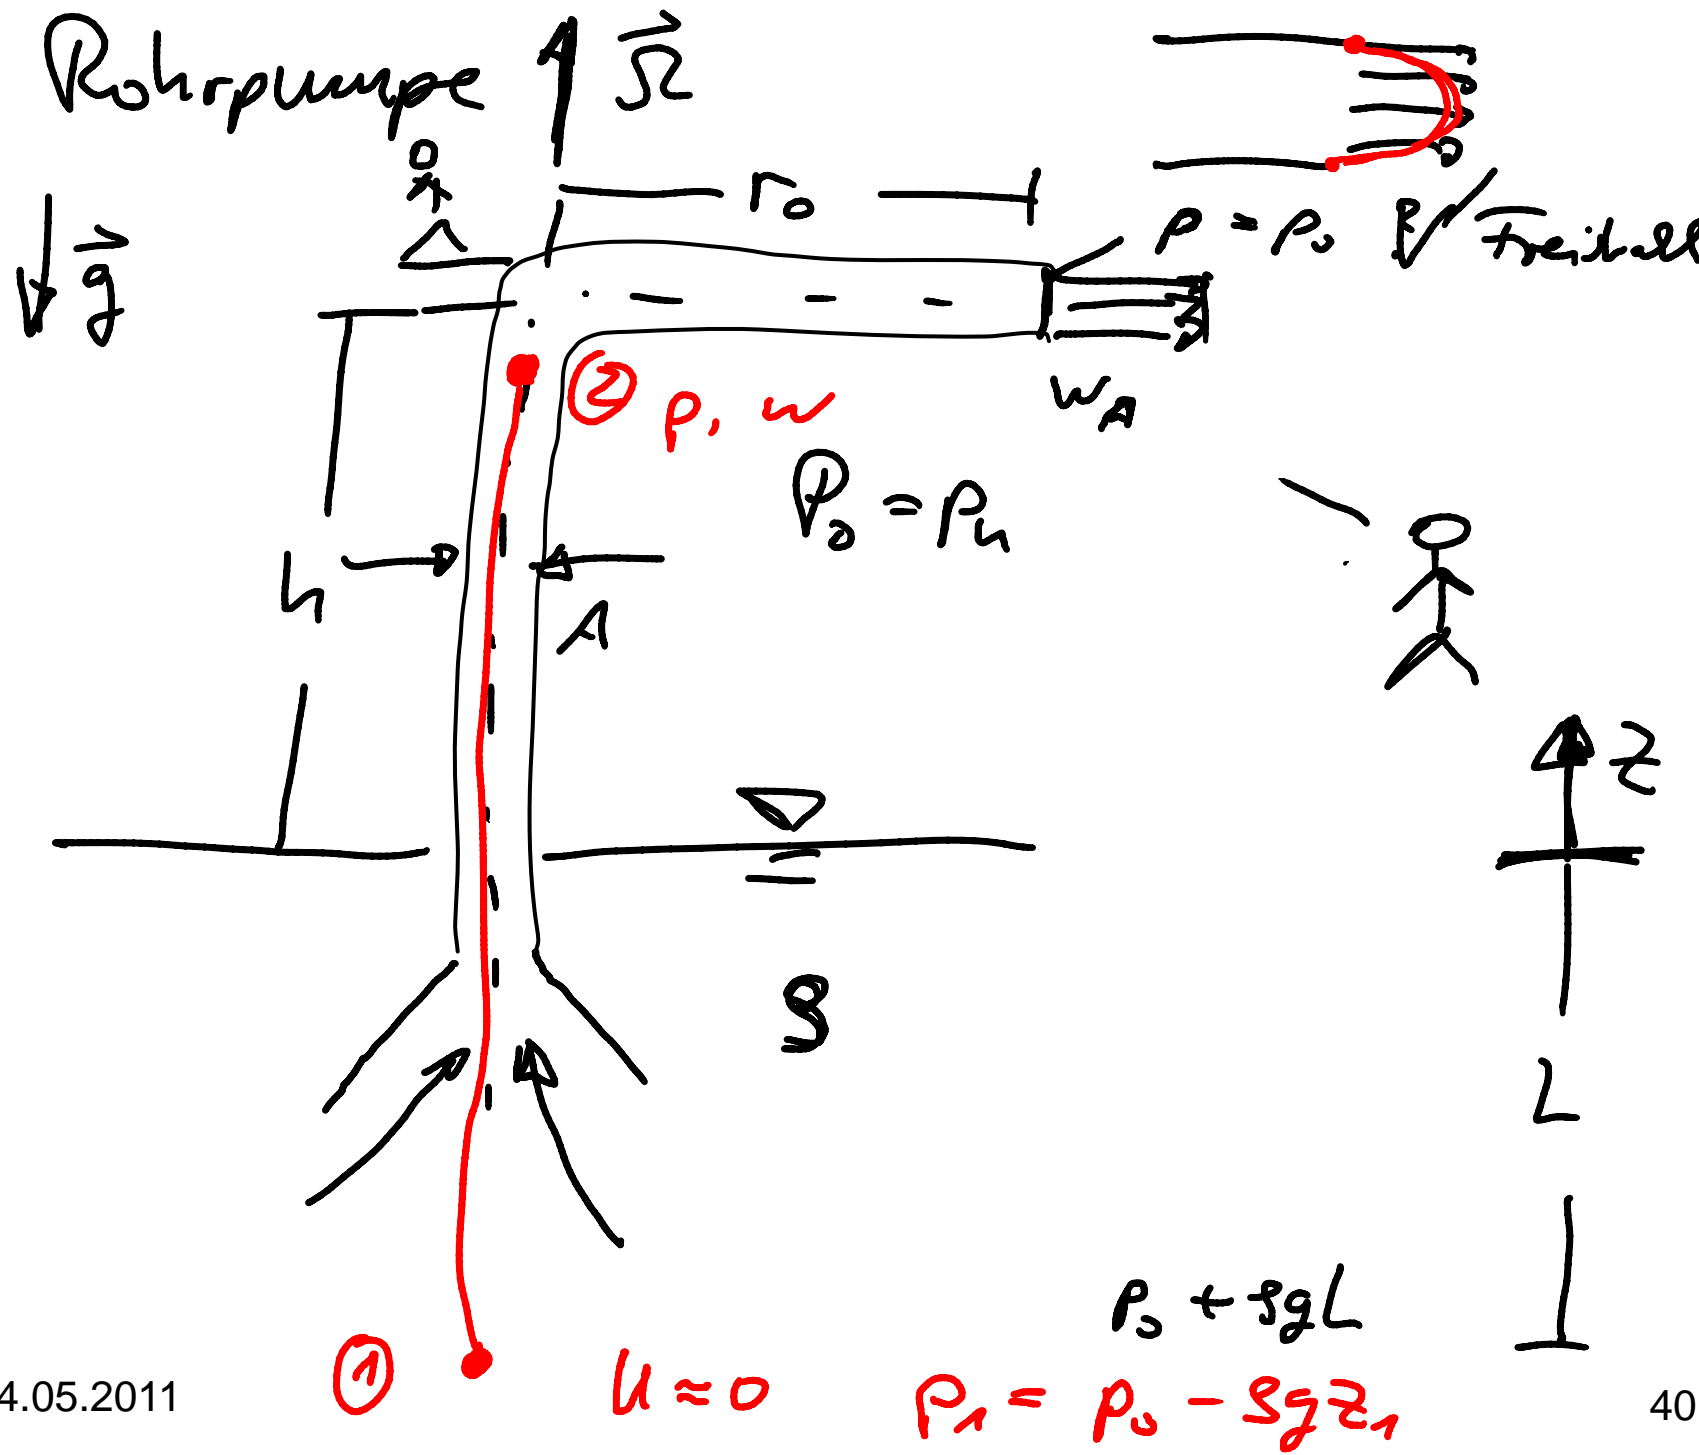 Rohrpumpe
Ω
g
r₀
p = p₀ Freistrahl
② p, w
w_A
P₀ = p_u
h
A
z
ρ
L
p₀ + ρgL
① u ≈ 0 p₁ = p₀ - ρgz₁
4.05.2011
40